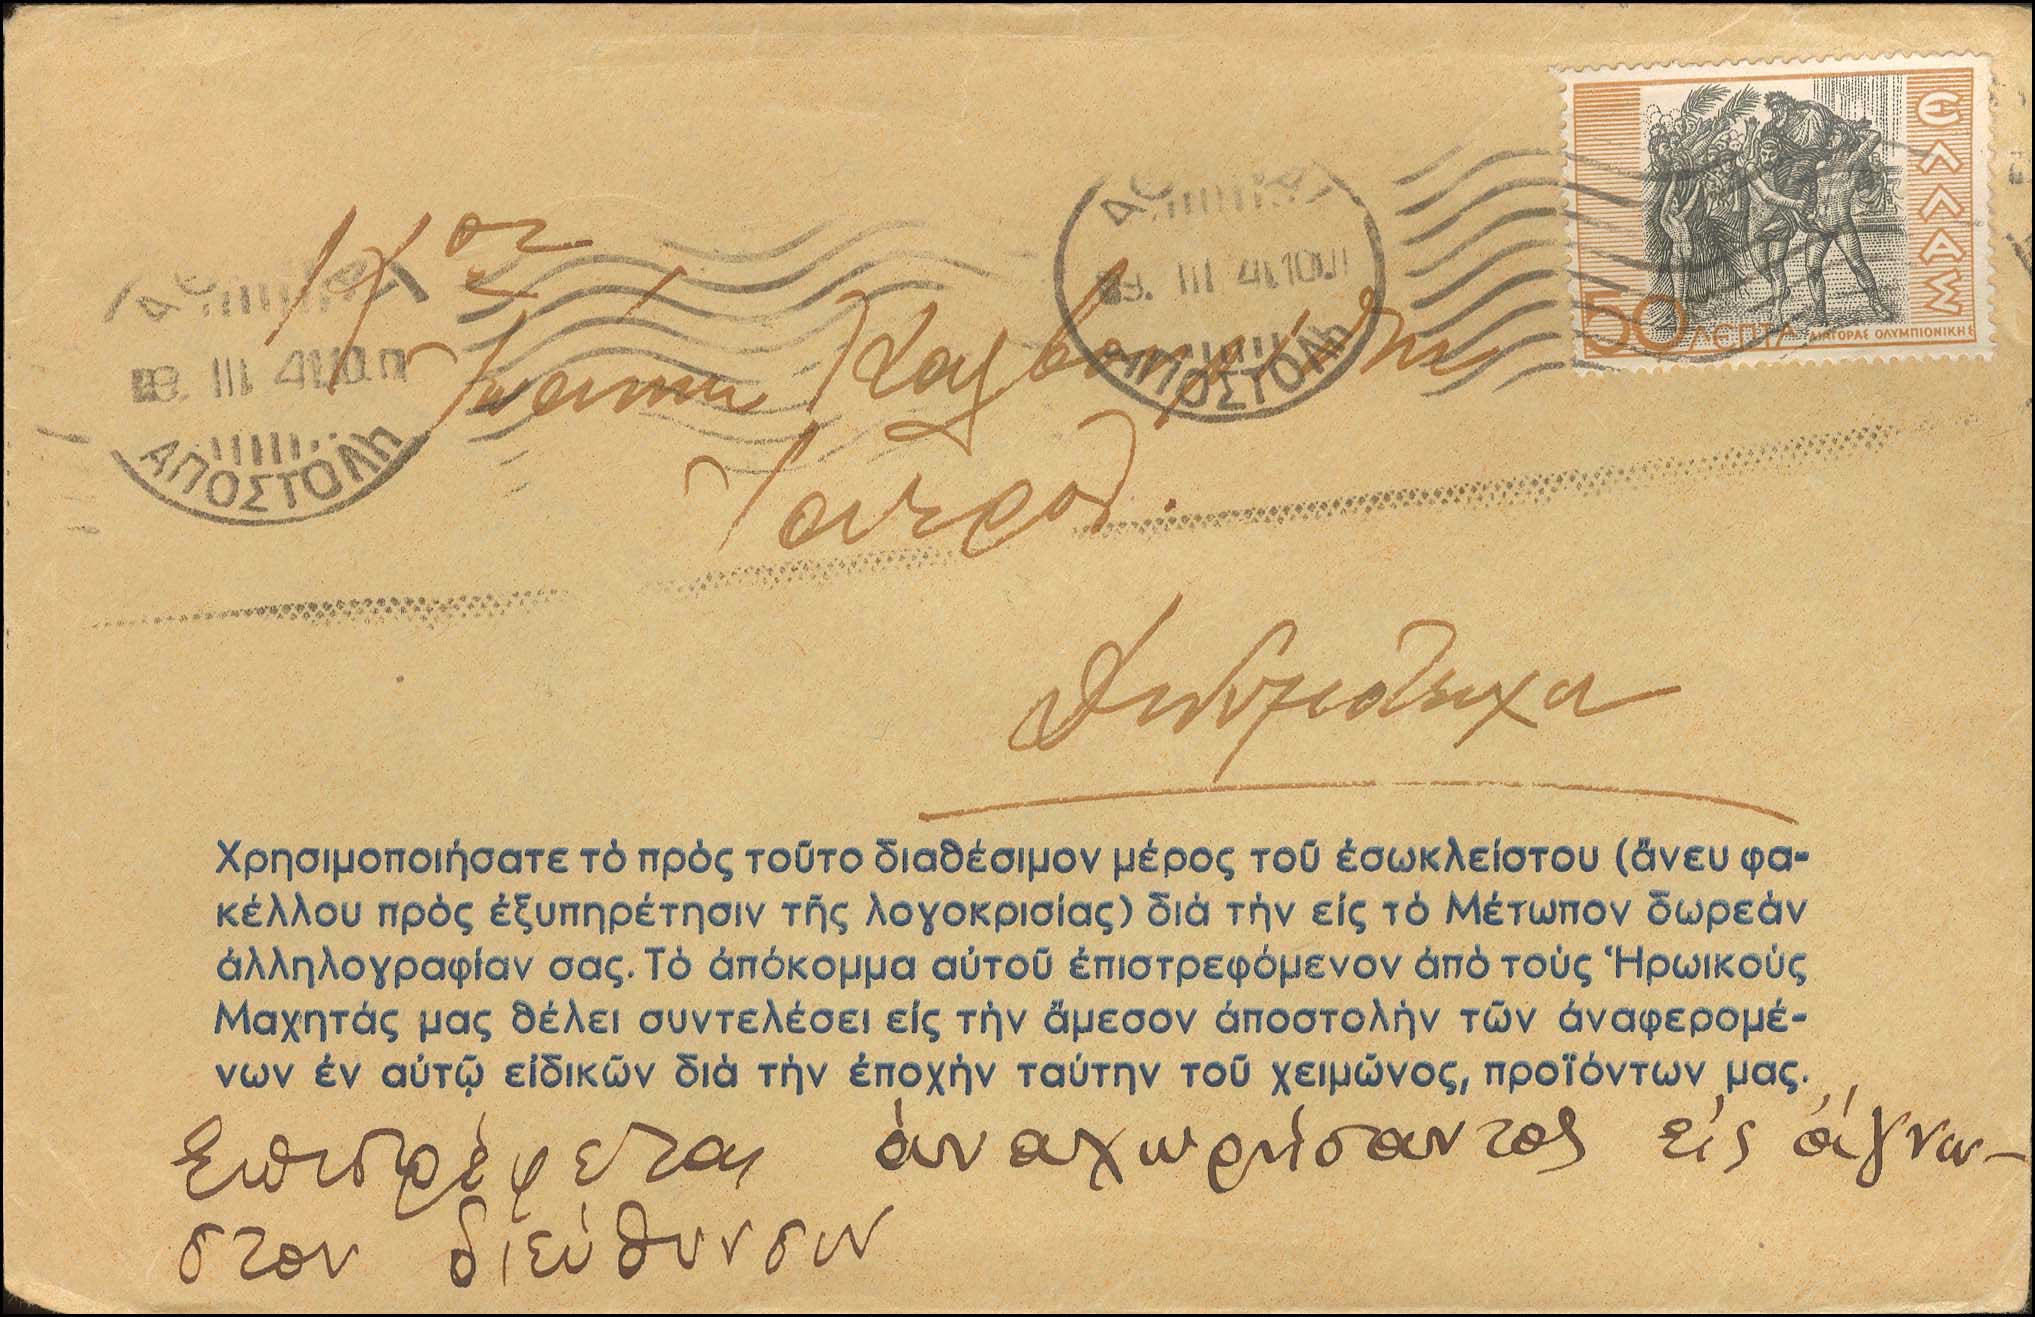 ΕΛΛΑΣ
50 ΛΕΠΤΑ ΔΙΑΓΟΡΑΣ ΟΛΥΜΠΙΟΝΙΚΗΣ
III 41
ΑΠΟΣΤΟΛΗ
III 41
ΑΠΟΣΤΟΛΗ
Κον
Ἰωάννην
Ἰατρόν
Διδυμότειχον
Χρησιμοποιήσατε τὸ πρὸς τοῦτο διαθέσιμον μέρος τοῦ ἐσωκλείστου (ἄνευ φα-
κέλλου πρὸς ἐξυπηρέτησιν τῆς λογοκρισίας) διὰ τὴν εἰς τὸ Μέτωπον δωρεὰν
ἀλληλογραφίαν σας. Τὸ ἀπόκομμα αὐτοῦ ἐπιστρεφόμενον ἀπὸ τοὺς Ἡρωικοὺς
Μαχητάς μας θέλει συντελέσει εἰς τὴν ἄμεσον ἀποστολὴν τῶν ἀναφερομέ-
νων ἐν αὐτῷ εἰδικῶν διὰ τὴν ἐποχὴν ταύτην τοῦ χειμῶνος, προϊόντων μας.
Ἐπιστρέφεται ἀναχωρήσαντος εἰς ἄγνω-
στον διεύθυνσιν